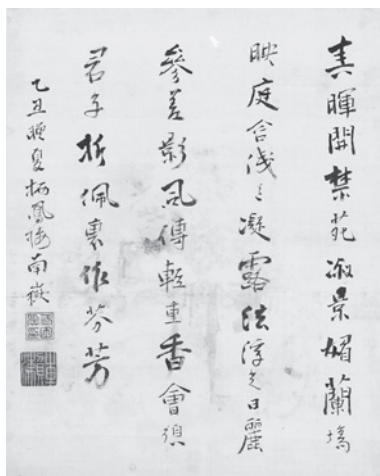 春暉開禁苑淑景媚蘭場
映庭含浅色凝露泫浮光日麗
參差影風傳輕重香會須
君子折佩裏作芬芳
乙丑晚夏栖鳳南嶽